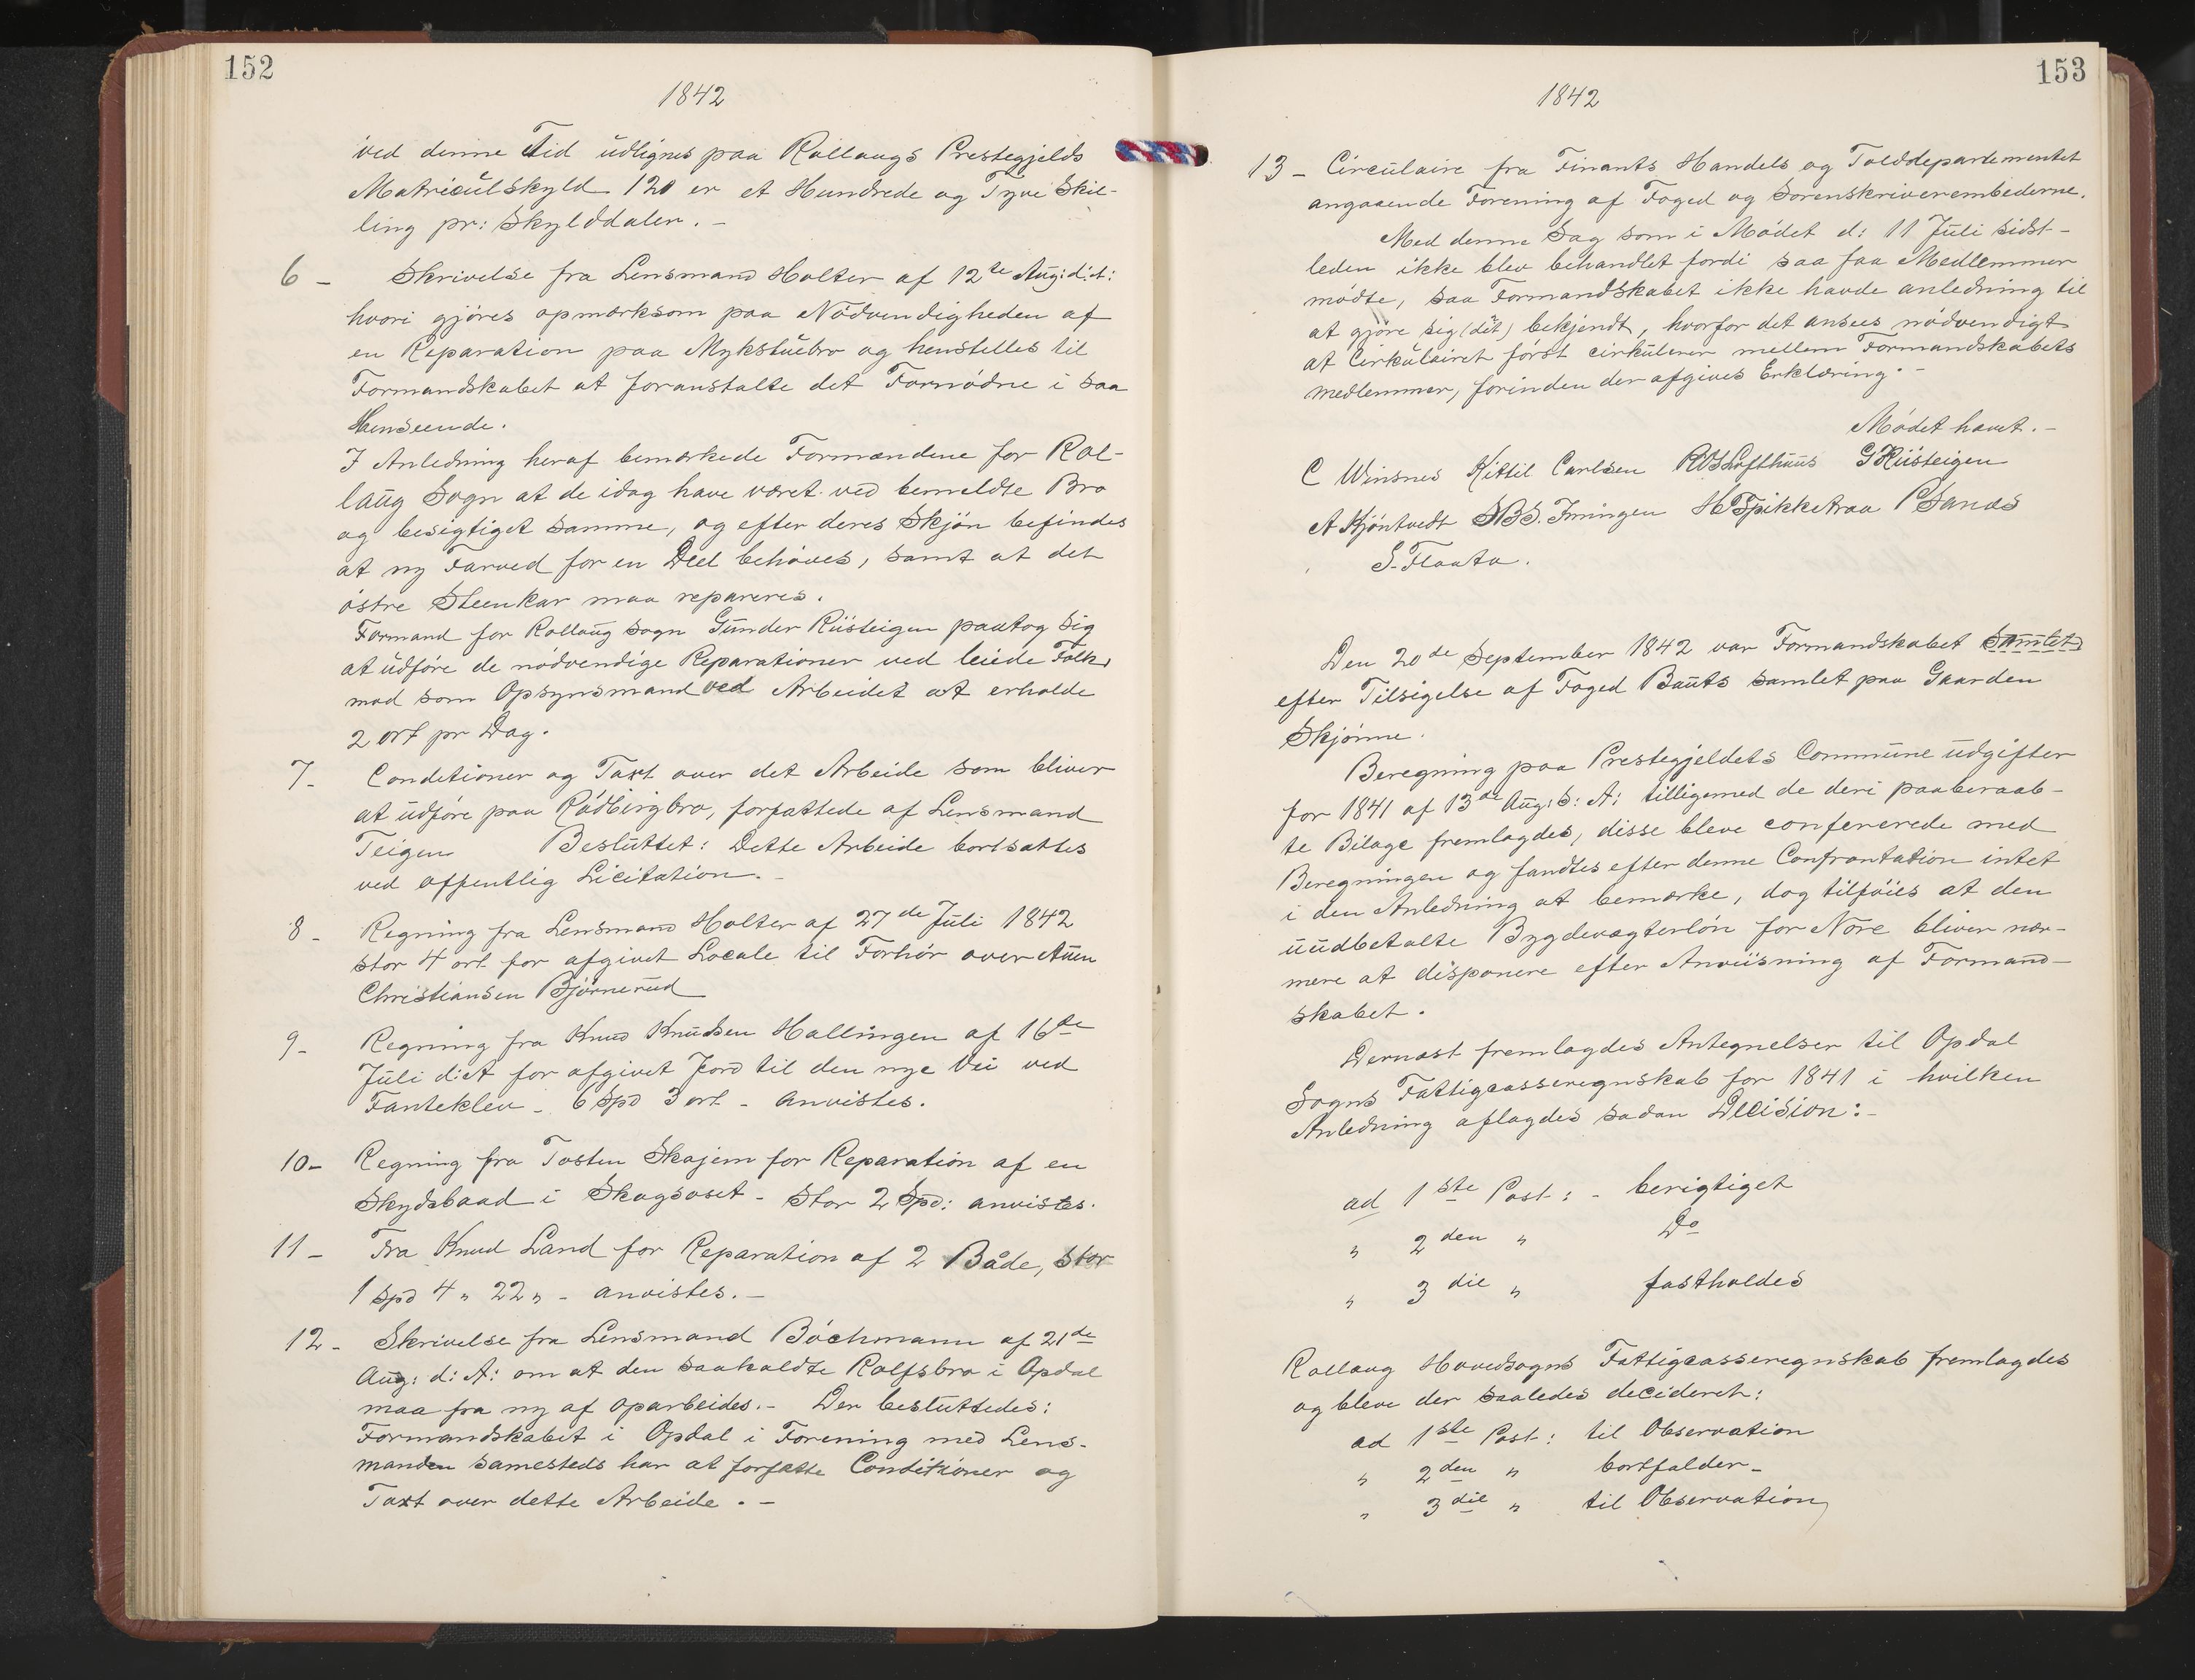 152
1842
ved denne Tid üdlignes paa Rollaugs Prestegjelds
Matricülskyld 120 er et Hundrede og Tyve Skil-
ling pr: Skylddaler. -
6 - Skrivelse fra Lensmand Holter af 12te Aug: d: A:
hvori gjöres opmærksom paa Nödvendigheden af
en Reparation paa Mykstüebro og henstelles til
Formandskabet at foranstalte det Fornödne i saa
Henseende.
I Anledning heraf bemærkede Formændene for Rol-
laüg Sogn at de idag have været ved bemeldte Bro
og besigtiget samme, og efter deres Skjön befindes
at ny Farved for en Deel behöves, samt at det
östre Steenkar maa repareres.
Formand for Rollaüg Sogn Günder Rüsteigen paatog sig
at üdföre de nödvendige Reparationer ved leiede Folk,
mod som Opsynsmand ved Arbeidet at erholde
2 ort pr Dag.
7 - Conditioner og Taxt over det Arbeide som bliver
at üdföre paa Rödbergbro, forfattede af Lensmand
Teigen Beslüttet: Dette Arbeide bortsættes
ved offentlig Licitation. -
8 - Regning fra Lensmand Holter af 27de Jüli 1842
stor 4 ort for afgivet Locale til Forhör over Aüen
Christiansen Björnerüd
9 - Regning fra Knud Knudsen Hallingen af 16de
Jüli d: A for afgivet Jord til den nye Vei ved
Fanteklev - 6 Spd 3 ort - anvistes.
10 - Regning fra Tosten Skajem for Reparation af en
Skydsbaad i Skogsoset - Stor 2 Spd: anvistes.
11 - Fra Knud Land for Reparation af 2 Både, stor
1 Spd 4 „ 22 „ - anvistes. -
12 - Skrivelse fra Lensmand Böchmann af 21de
Aüg: d: A: om at den saakaldte Rolfsbro i Opdal
maa fra ny af oparbeides. - Der beslüttedes:
Formandskabet i Opdal i Forening med Lens-
manden samesteds har at forfatte Conditioner og
Taxt over dette Arbeide. -
153
1842
13 - Circülaire fra Finants Handels og Tolddepartementet
angaaende Forening af Foged og Sorenskriverembederne.
Med denne Sag som i Mödet d: 11 Jüli sidst-
leden ikke blev behandlet fordi saa faa Medlemmer
mödte, saa Formandskabet ikke havde anledning til
at gjöre sig (det) bekjendt, hvorfor det ansees nödvendigt
at Cirkülairet först cirkülerer mellem Formandskabets
medlemmer, forinden der afgives Erklæring. -
Mödet hævet. -
C Winsnes Kittil Carlsen ROS Lofthuus G Rüsteigen
A Kjöntvedt SBS. Imingen H Spikketraa P Sanæs
G. Flaata.
Den 20de September 1842 var Formandskabet Samlet
efter Tilsigelse af Foged Baüts samlet paa Gaarden
Skjönne.
Beregning paa Prestegjeldets Commüne üdgifter
for 1841 af 13de Aüg: d: A: tilligemed de deri paaberaab-
te Bilage fremlagdes, disse bleve confererede med
Beregningen og fandtes efter denne Confrontation intet
i den Anledning at bemærke, dog tilföies at den
üüdbetalte Bygdevægterlön for Nore bliver nær-
mere at disponere efter Anviisning af Formand-
skabet.
Dernæst fremlagdes Antegnelser til Opdal
Sogns Fattigcasseregnskab for 1841 i hvilken
Anledning aflagdes sadan Decision: -
ad 1ste Post: - berigtiget
„ 2den „ Do
„ 3die „ fastholdes
Rollaug Hovedsogns Fattigcasseregnskab fremlagdes
og bleve der saaledes decideret:
ad 1ste Post: til Observation
„ 2den „ bortfalder -
„ 3die „ til Observation